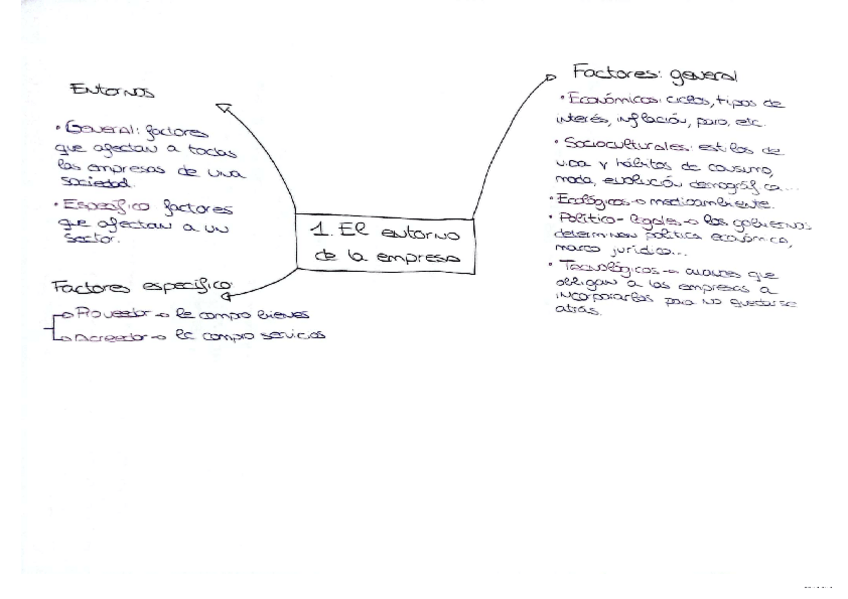 Entornos
• General: factores
que afectan a todas
las empresas de una
sociedad.
• Específico factores
que afectan a un
sector.
Factores: general
• Económicos: ciclos, tipos de
interés, inflación, paro, etc.
• Socioculturales: estilos de
vida y hábitos de consumo,
moda, evolución demográfica...
• Ecológicos → medioambiente.
• Político-legales → los gobiernos
determinan política económica,
marco jurídico...
• Tecnológicos → avances que
obligan a las empresas a
incorporarlos para no quedarse
atrás.
1. El entorno
de la empresa
Factores específico
Proveedor → le compro bienes
Acreedor → le compro servicios